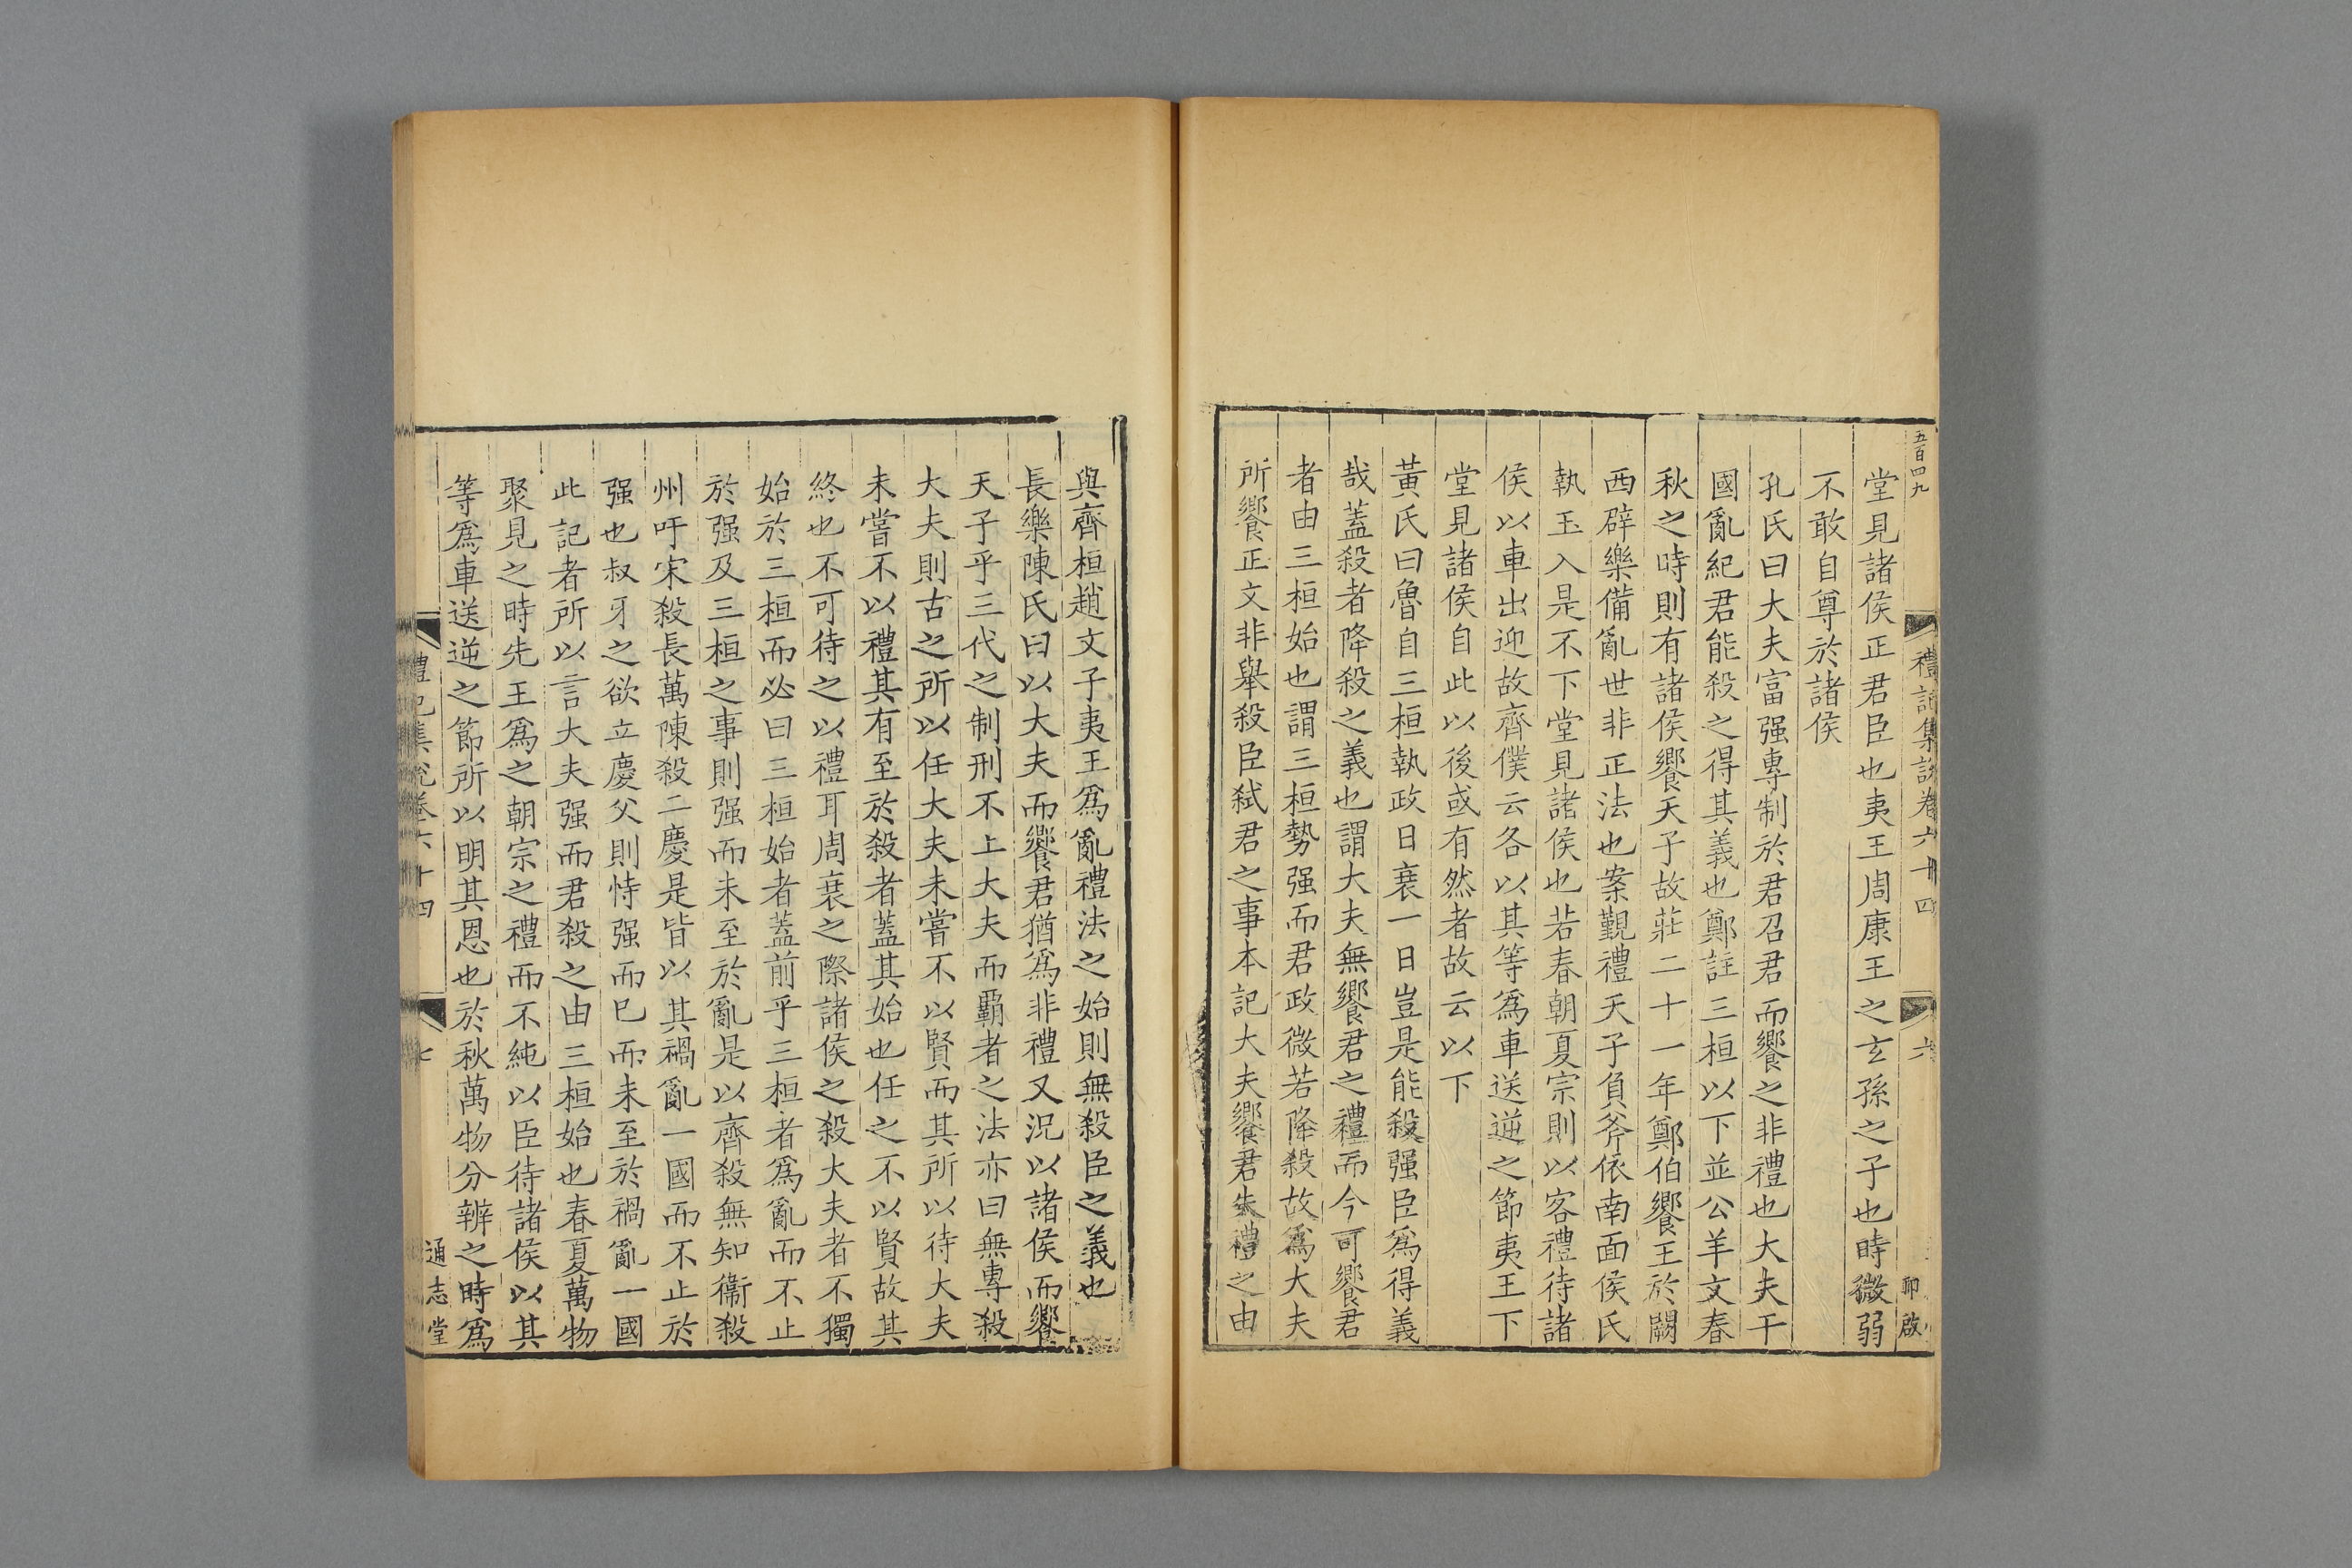 五百四九
禮記集說卷六十四 六
卯啟
堂見諸侯正君臣也夷王周康王之玄孫之子也時微弱
不敢自尊於諸侯
孔氏曰大夫富强專制於君召君而饗之非禮也大夫干
國亂紀君能殺之得其義也鄭註三桓以下並公羊文春
秋之時則有諸侯饗天子故莊二十一年鄭伯饗王於闕
西辟樂備亂世非正法也案覲禮天子負斧依南面侯氏
執玉入是不下堂見諸侯也若春朝夏宗則以客禮待諸
侯以車出迎故齊僕云各以其等為車送逆之節夷王下
堂見諸侯自此以後或有然者故云以下
黃氏曰魯自三桓執政日衰一日豈是能殺强臣為得義
哉蓋殺者降殺之義也謂大夫無饗君之禮而今可饗君
者由三桓始也謂三桓勢强而君政微若降殺故為大夫
所饗正文非舉殺臣弑君之事本記大夫饗君失禮之由
與齊桓趙文子夷王為亂禮法之始則無殺臣之義也
長樂陳氏曰以大夫而饗君猶為非禮又況以諸侯而饗
天子乎三代之制刑不上大夫而霸者之法亦曰無專殺
大夫則古之所以任大夫未嘗不以賢而其所以待大夫
未嘗不以禮其有至於殺者蓋其始也任之不以賢故其
終也不可待之以禮耳周衰之際諸侯之殺大夫者不獨
始於三桓而必曰三桓始者蓋前乎三桓者為亂而不止
於强及三桓之事則强而未至於亂是以齊殺無知衞殺
州吁宋殺長萬陳殺二慶是皆以其禍亂一國而不止於
强也叔牙之欲立慶父則恃强而已而未至於禍亂一國
此記者所以言大夫强而君殺之由三桓始也春夏萬物
聚見之時先王為之朝宗之禮而不純以臣待諸侯以其
等為車送逆之節所以明其恩也於秋萬物分辨之時為
禮記集說卷六十四 七
通志堂